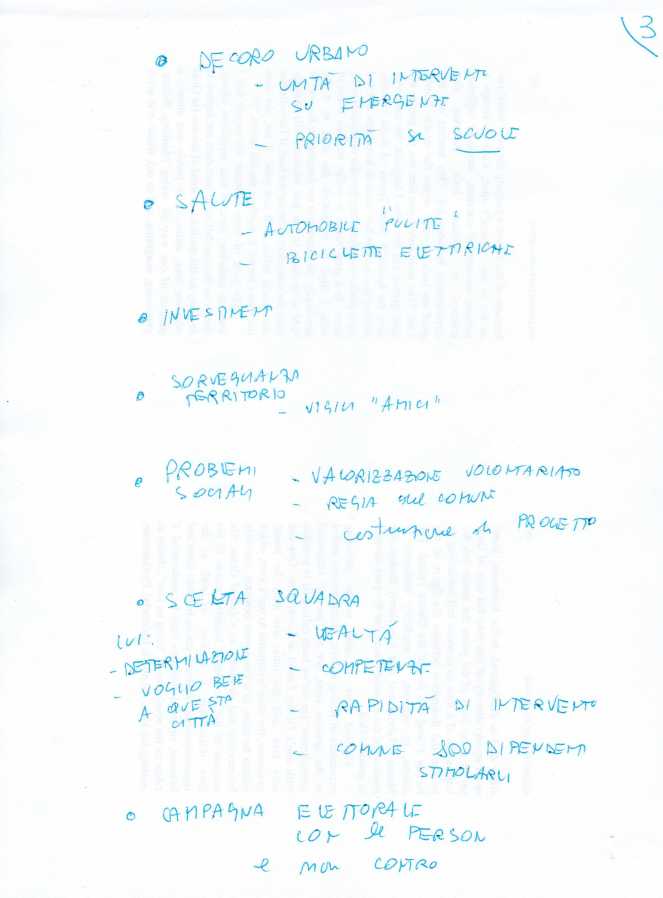 3
• DECORO URBANO
- UNITÀ DI INTERVENTO
SU EMERGENZE
- PRIORITÀ SU SCUOLE
• SALUTE
- AUTOMOBILE "PULITE"
- BICICLETTE ELETTRICHE
• INVESTIMENTI
• SORVEGLIANZA
TERRITORIO
- VIGILI "AMICI"
• PROBLEMI
SOCIALI
- VALORIZZAZIONE VOLONTARIATO
- REGIA del COMUNE
- costruzione di PROGETTO
• SCELTA SQUADRA
- LEALTÀ
- COMPETENZE
- RAPIDITÀ DI INTERVENTO
- COMUNE 800 DIPENDENTI
STIMOLARLI
LUI:
- DETERMINAZIONE
- VOGLIO BENE
A QUESTA
CITTÀ
• CAMPAGNA ELETTORALE
CON le PERSON
e non CONTRO